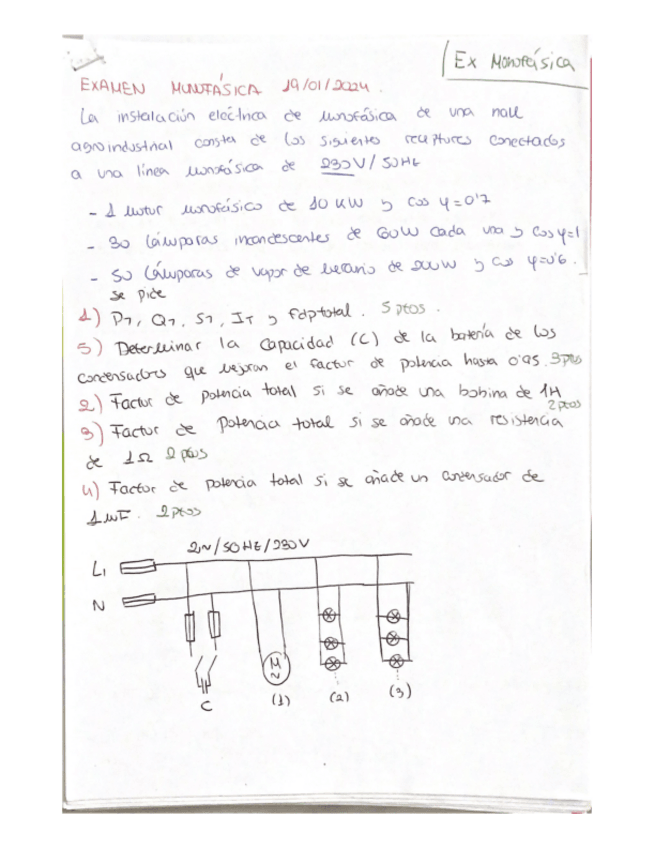 Ex Monofásica
EXAMEN MONOFÁSICA 19/01/2024.
La instalación eléctrica de monofásica de una nave
agroindustrial consta de los siguiente receptores conectados
a una línea monofásica de 230V/50Hz
- 1 motor monofásico de 10 KW y cos φ=0'7
- 30 lámparas incandescentes de 60W cada una y cos φ=1
- 50 lámparas de vapor de mercurio de 200W y cos φ=0'6.
se pide
1) PT, QT, ST, IT y fdp total. 5 ptos.
5) Determinar la capacidad (C) de la batería de los
condensadores que mejoran el factor de potencia hasta 0'95. 3ptos
2) Factor de potencia total si se añade una bobina de 1H
2ptos
3) Factor de potencia total si se añade una resistencia
de 1Ω 2 ptos
4) Factor de potencia total si se añade un condensador de
1µF. 2ptos
2N/50Hz/230V
L1
N
M
~
C (1) (2) (3)